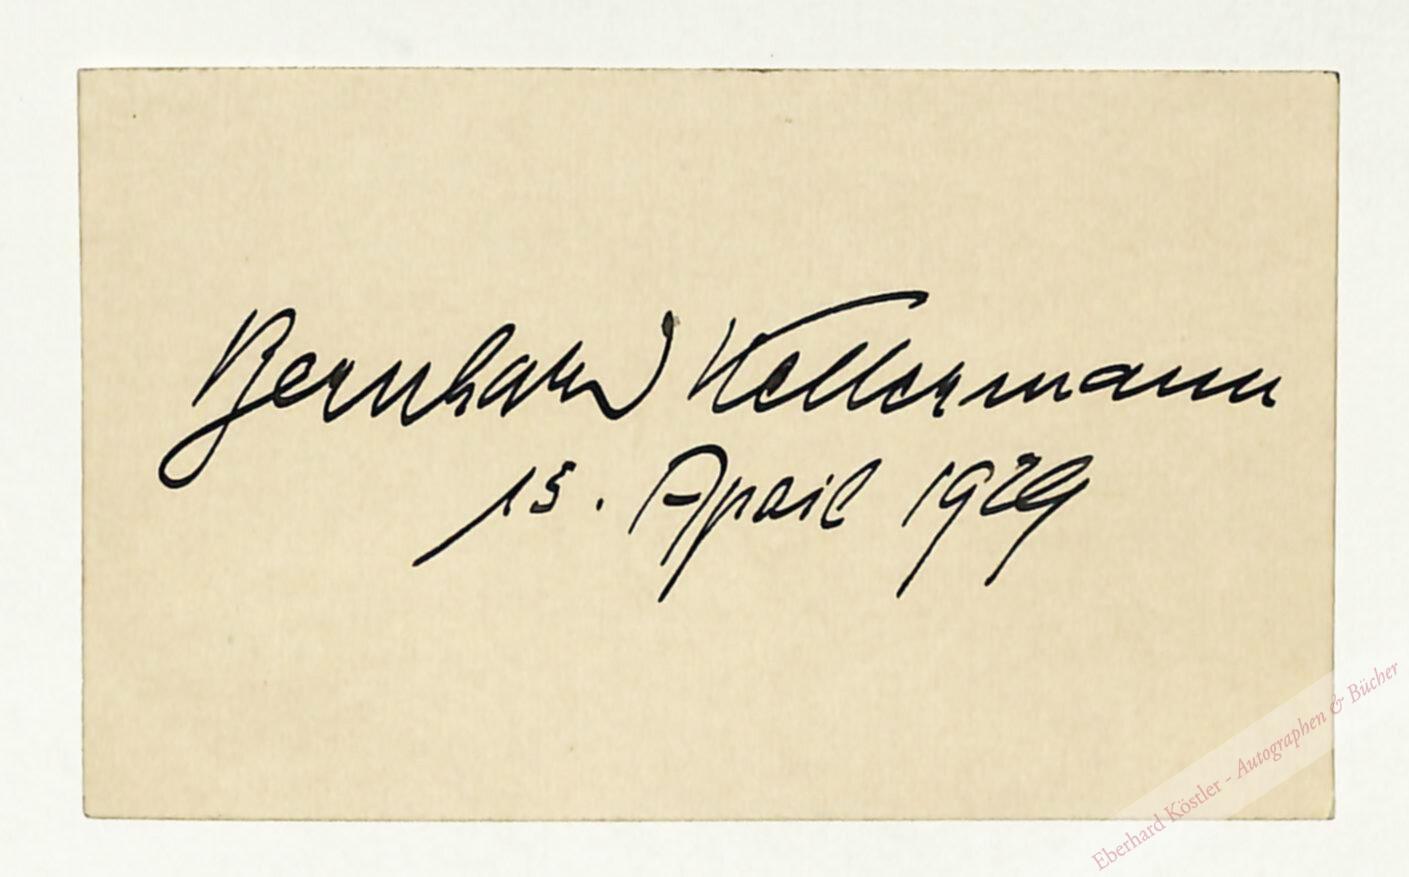 Bernhard Kellermann
15. April 1929
Eberhard Köstler - Autographen & Bücher